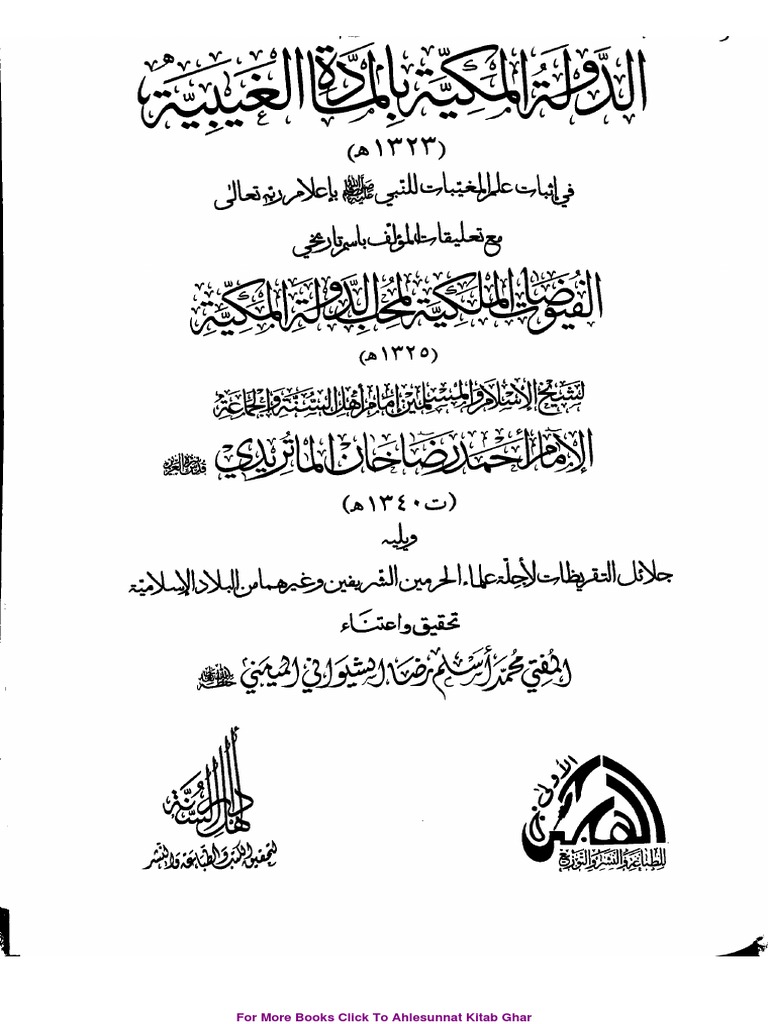 الدَّولَةُ المَكِّيَّة بِالمَادَّةِ الغَيبِيَّة
(١٣٢٣هـ)
في إثبات علم المغيّبات للنبي ﷺ بإعلام ربّه تعالى
مع تعليقات المؤلف باسم تاريخي
الفُيُوضَات المَلَكِيَّة لمُحِبِّ الدَّولَةِ المَكِّيَّة
(١٣٢٥هـ)
لشيخ الإسلام والمسلمين إمام أهل السنّة والجماعة
الإمام أحمد رضا خان الماتُريدي
(ت ١٣٤٠هـ)
ويليه
جلائل التقريظات لأجلّة علماء الحرمين الشريفين وغيرهما من البلاد الإسلاميّة
تحقيق واعتناء
المفتي محمّد أسلم رضا الشيواني الميمني حفظه الله
دار أهل السُّنَّة
لتحقيق الكتب والطباعة والنشر
الأولى
للطباعة والنشر والتوزيع
For More Books Click To Ahlesunnat Kitab Ghar